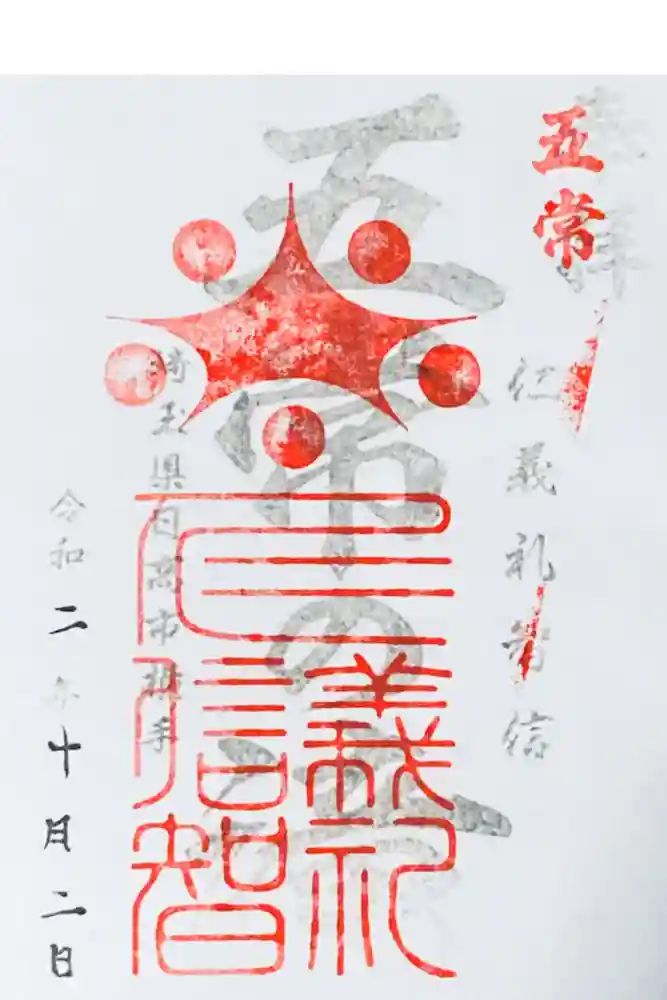 奉拝
五常
仁義礼智信
五常の
埼玉県日高市横手
仁義礼信智
令和二年十月二日